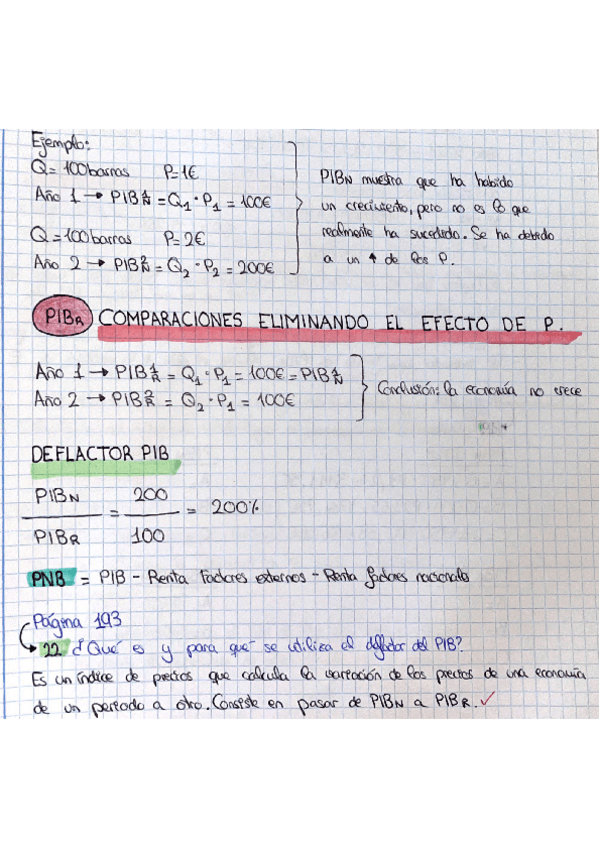 Ejemplo:
Q = 100 barras P = 1€
Año 1 → PIB¹N = Q₁ · P₁ = 100€
Q = 100 barras P = 2€
Año 2 → PIB²N = Q₂ · P₂ = 200€
PIBN muestra que ha habido
un crecimiento, pero no es lo que
realmente ha sucedido. Se ha debido
a un ↑ de los P.
PIBR COMPARACIONES ELIMINANDO EL EFECTO DE P.
Año 1 → PIB¹R = Q₁ · P₁ = 100€ = PIB¹N
Año 2 → PIB²R = Q₂ · P₁ = 100€
Conclusión: la economía no crece
DEFLACTOR PIB
PIBN / PIBR = 200 / 100 = 200%
PNB = PIB - Renta factores externos - Renta factores nacionales
Página 193
22. ¿Qué es y para qué se utiliza el deflactor del PIB?
Es un índice de precios que calcula la variación de los precios de una economía
de un periodo a otro. Consiste en pasar de PIBN a PIBR. ✓